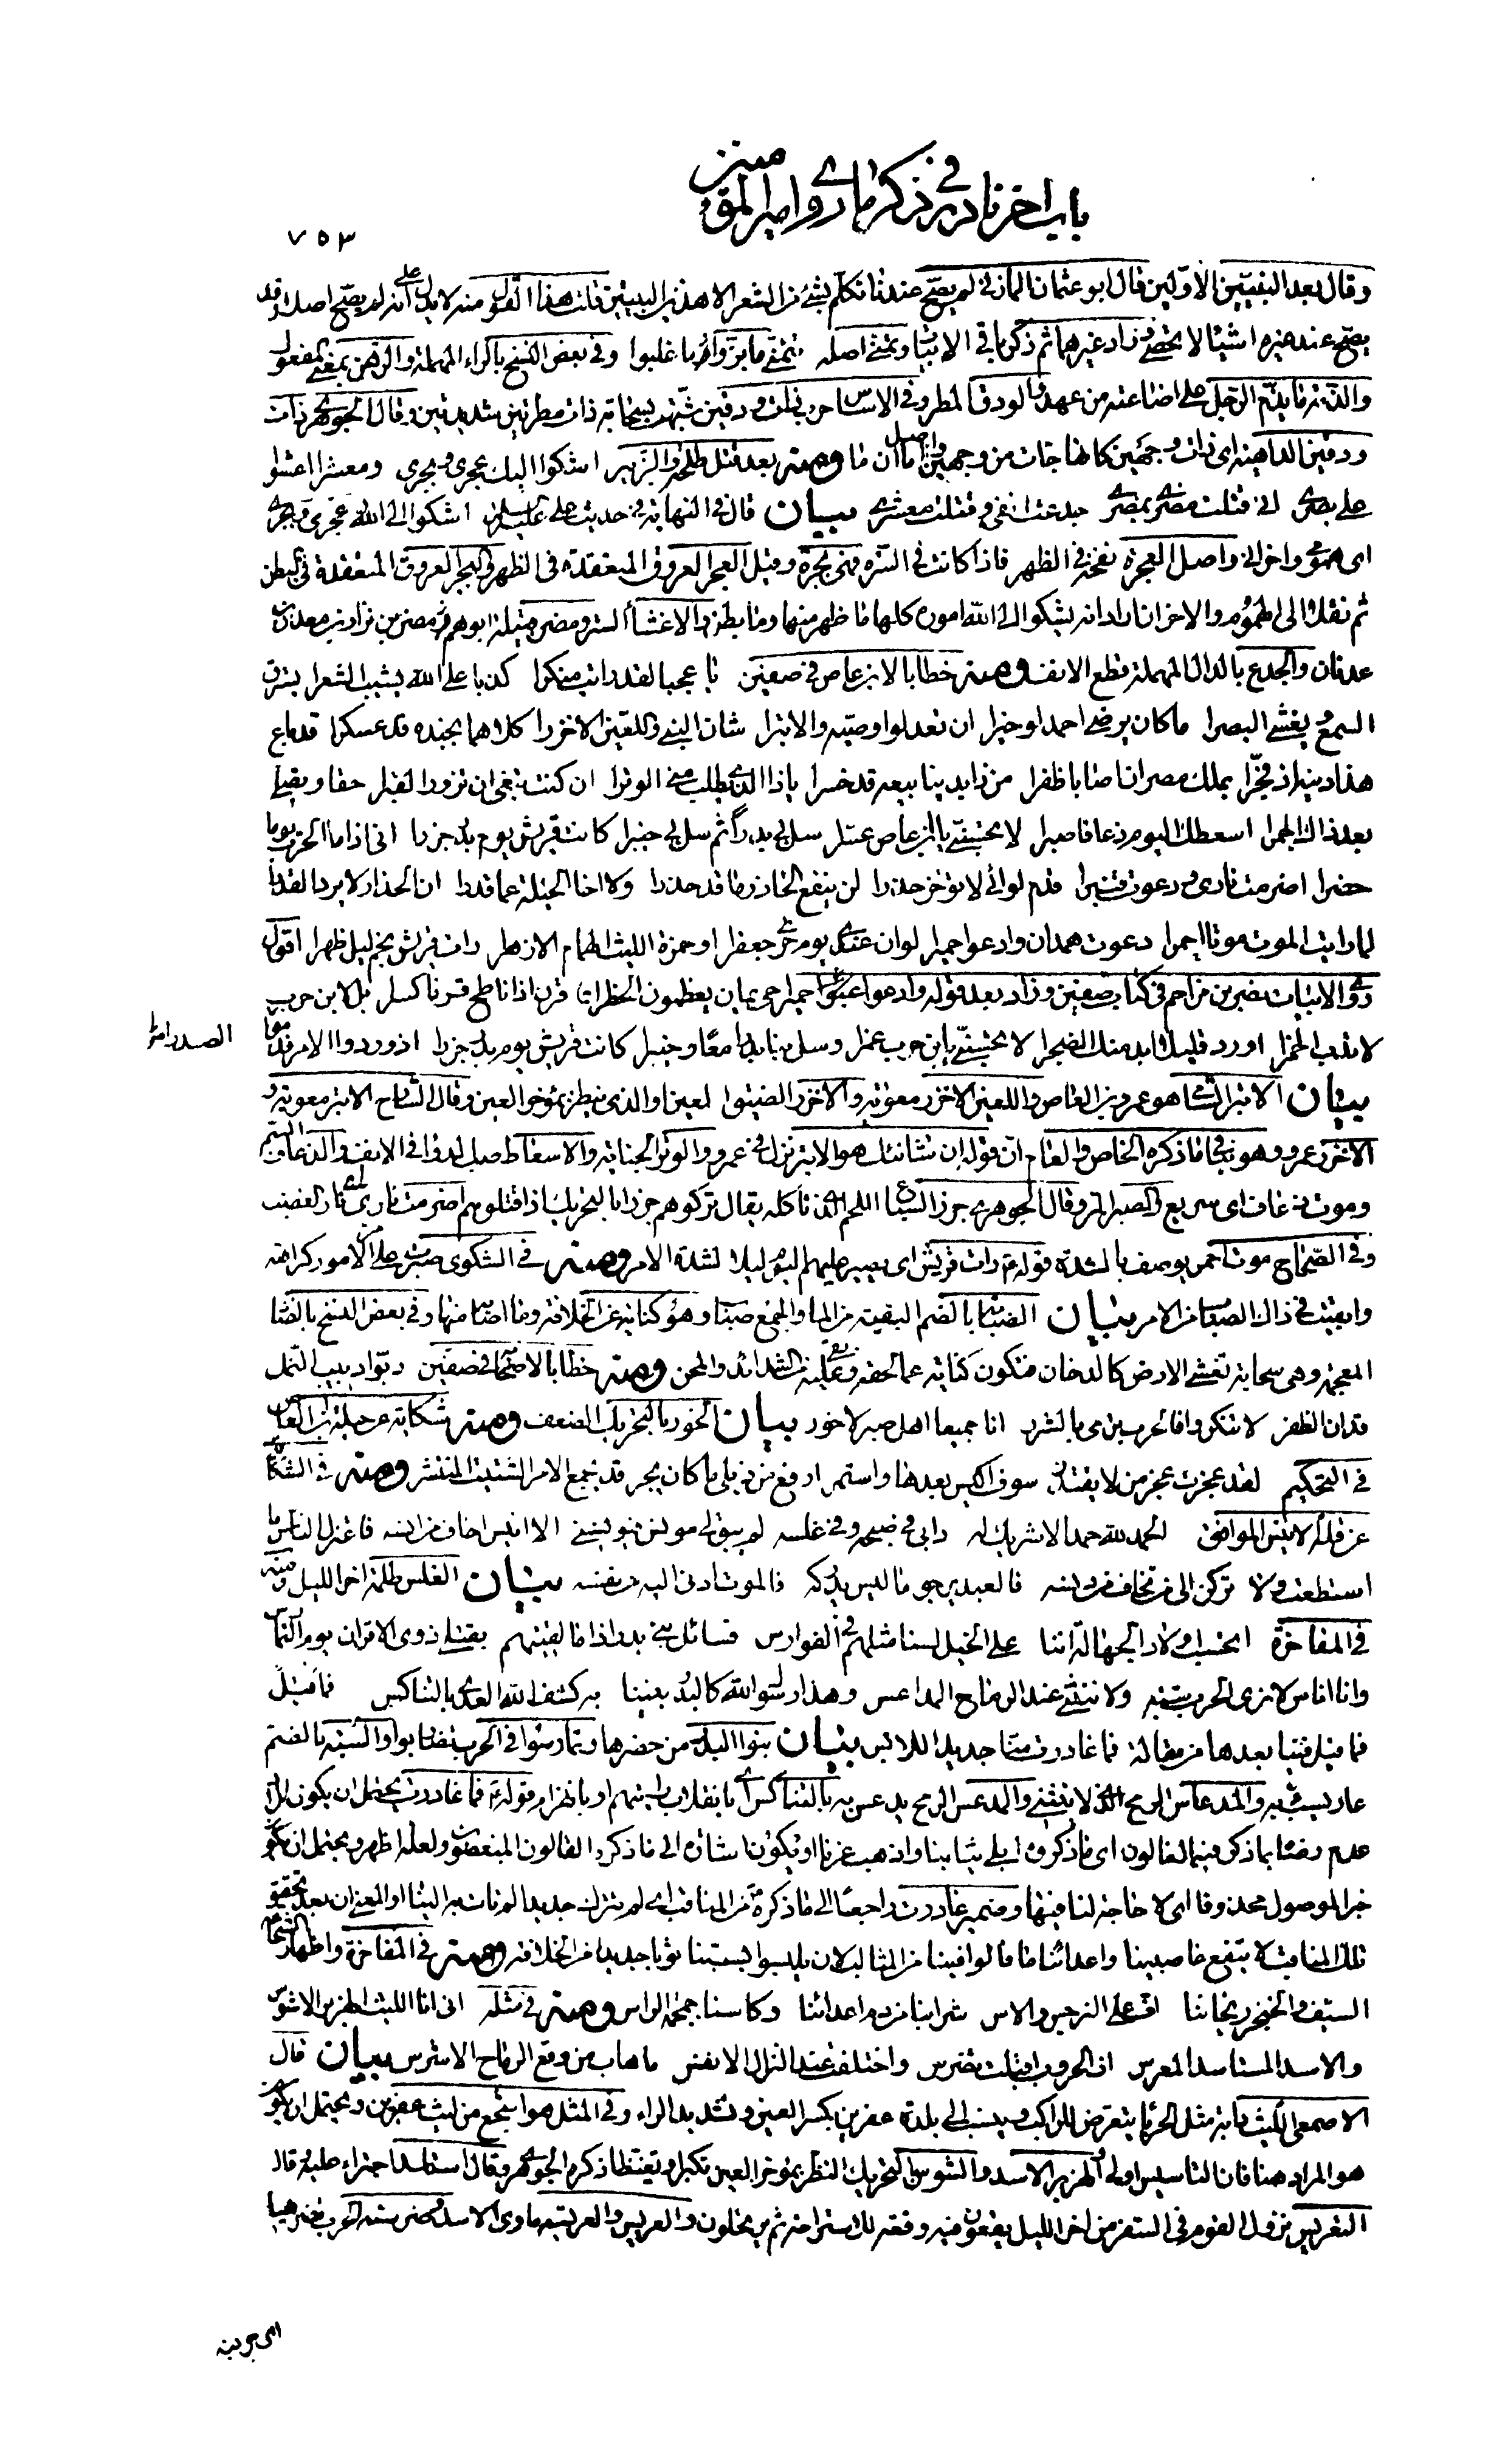 باب اخر نادر في ذكر ما روي امير المؤمنين
٧٥٣
وقال بعد البيتين الاولين قال ابو عثمان المازني لم يصح عندنا انه تكلم بشئ من الشعر الا هذين البيتين قلت هذا القول منه لا يدل على انه لم يصح اصلا وقد
يصح عند غيره اشياء لا تحصى زاد غيرهما ثم ذكر باقي الابيات وتمنى اصله تتمنى ما بزوا اي ما غلبوا وفي بعض النسخ بالراء المهملة والرهن بمعنى المفعول
والذمة ما يذم الرجل على اضاعته من عهد والودق المطر وفي الاساس حرب ذات ودقين شبهت بسحابة ذات مطرتين شديدتين وقال الجوهري ذات
ودقين الداهية اي ذات وجهين كانها جاءت من وجهين ومنه بعد قتل طلحة والزبير اشكوا اليك عجري وبجري ومعشرا اعشوا
علي بصري اني قتلت مضري بمضري جدعت انفي وقتلت معشري بيان قال في النهاية في حديث علي عليه السلام اشكوا الى الله عجري وبجري
اي همومي واحزاني واصل العجرة نفخة في الظهر فاذا كانت في السرة فهي بجرة وقيل العجر العروق المتعقدة في الظهر والبجر العروق المتعقدة في البطن
ثم نقلا الى الهموم والاحزان اراد انه يشكو الى الله اموره كلها ما ظهر منها وما بطن والاغشاء الستر ومضر قبيلة ابوهم مضر بن نزار بن معد بن
عدنان والجدع بالدال المهملة قطع الانف ومنه خطابا لابن عاص في صفين يا عجبا لقد رايت منكرا كذبا على الله يشيب الشعرا يسترق
السمع ويغشى البصرا ما كان يرضى احمد لو خبرا ان تعدلوا وصيه والابترا شاني النبي واللعين الاخزرا كلاهما بجنده قد عسكرا قد باع
هذا دينه اذ فجرا بملك مصر ان اصابا ظفرا من ذا بدنيا بيعه قد خسرا يا ذا الذي يطلب مني الوترا ان كنت تبغي ان تزور القبرا حقا وتصلى
بعد ذاك الجمرا اسعطك اليوم ذعافا صبرا لا تحسبني يا ابن عاص غمرا سل بي بدرا ثم سل بي خيبرا كانت قريش يوم بدر جزرا اني اذا ما الحرب يوما
حضرا اضرمت ناري ودعوت قنبرا قدم لوائي لا تؤخر حذرا لن ينفع الحاذر ما قد حذرا ولا اخا الحيلة عما قدرا ان الحذار لا يرد القدرا
لما رايت الموت موتا احمرا دعوت همدان وادعوا حميرا لو ان عندي يوم حربي جعفرا او حمزة الليث الهمام الازهرا رات قريش نجم ليل ظهرا اقول
روى الابيات نصر بن مزاحم في كتاب صفين وزاد بعد قوله وادعوا حميرا حي يمان يعظمون الخطرا قرن اذا ناطح قرنا كسرا قل لابن حرب
لا تدب الخمرا اورد قليلا ابد منك الضجرا لا تحسبني يا ابن حرب غمرا وسل بنا بدرا معا وخيبرا كانت قريش يوم بدر جزرا اذ وردوا الامر فذموا
الصدرا
بيان الابتر الشاني هو عمرو بن العاص واللعين الاخزر معوية والاخزر الضيق العين او الذي ينظر بمؤخر العين وقال الشارح الابتر معوية و
الاخزر عمرو وهو يخالف ما ذكره الخاص والعام ان قوله ان شانئك هو الابتر نزل في عمرو والوتر الجناية والاسعاط صب الدواء في الانف والذعاف السم
وموت ذعاف اي سريع والصبر المر وقال الجوهري جزر السباع اللحم الذي تاكله يقال تركوهم جزرا بالتحريك اذا قتلوهم اضرمت ناري اي نار الغضب
وفي الصحاح موت احمر يوصف بالشدة قوله رات قريش اي يصير عليهم اليوم ليلا لشدة الامر ومنه في الشكوى صبرت على مر الامور كراهة
وابقيت في ذاك الصباب من الامر بيان الصبابة بالضم البقية من الماء والجمع صباب وهو كناية عن الخلافة وما اصابه منها وفي بعض النسخ بالضاد
المعجمة وهي سحابة تغشى الارض كالدخان فتكون كناية عما لحقه وبقي عليه من الشدائد والمحن ومنه خطابا لاصحابه في صفين دبوا دبيب النمل
قد ان الظفر لا تنكروا فالحرب ترمي بالشرر انا جميعا اهل صبر لا خور بيان الخور بالتحريك الضعف ومنه شكاية عن حيلة ابن العاص
في التحكيم لقد عجزت عجز من لا يقتدر سوف اكيس بعدها واستمر ارفع من ذيلي ما كان يجر قد يجمع الامر الشتيت المنتشر ومنه في الشكاية
عن قلة الانيس الموافق الحمد لله حمدا لا شريك له دابي في صبحه وفي غلسه لم يبق لي مونس فيونسني الا انيس اخاف من انسه فاعتزل الناس ما
استطعت ولا تركن الى من تخاف من دنسه فالعبد يرجو ما ليس يدركه والموت ادنى اليه من نفسه بيان الغلس ظلمة اخر الليل ومنه
في المفاخرة اتحسب اولاد الجهالة اننا على الخيل لسنا مثلهم في الفوارس فسائل بني بدر اذا ما لقيتهم بقتلي ذوي الاقران يوم التمارس
وانا اناس لا نرى الحرب سبة ولا ننثني عند الرماح المداعس وهذا رسول الله كالبدر بيننا به كشف الله العدى بالتناكس فما قيل
فينا بعدها من مقالة فما غادرت منا جديدا للابس بيان بنوا البدر من حضرها وتمارسوا في الحرب تضاربوا والسبة بالضم
عار يسب به والمداعس الرمح الذي لا ينثني والمدعس الرمح يدعس به بالتناكس اي بانقلاب رايتهم او بانهزام قوله فما غادرت يحتمل ان يكون المراد
عدم رضا بما ذكر فينا القالون اي ما ذكروه ابلى ثيابنا واذهب عزنا او يكون اشارة الى ما ذكره القالون المبغضون ولعله اظهر ويحتمل ان يكون
خبر الموصول محذوفا اي لا حاجة لنا فيها وضمير غادرت راجعا الى ما ذكره من المناقب اي لم تترك جديدا لم نات به البتة او المعنى ان بعد تحقق
تلك المناقب لا ينفع غاصبينا واعدائنا ما قالوا فينا من المثالب لان يلبسوا بسببنا ثوبا جديدا من الخلافة ومنه في المفاخرة واظهار الشجاعة
السيف والخنجر ريحاننا اف على النرجس والاس شرابنا من دم اعدائنا وكاسنا جمجمة الراس ومنه في مثله اني انا الليث الهزبر الاشوس
والاسد المستاسد المعرس اذ الحروب اقبلت تضرس واختلفت عند النزال الانفس ما هاب من وقع الرماح الاشرس بيان قال
الاصمعي الليث دابة مثل الحرباء يتعرض للراكب وينسب الى بلدة عفرين بكسر العين وتشديد الراء وفي المثل هو اشجع من ليث عفرين ويحتمل ان يكون
هو المراد هنا فان التاسيس اولى والهزبر الاسد والشوس بالتحريك النظر بمؤخر العين تكبرا وتغيظا ذكره الجوهري وقال استاسد اجترء عليه قال
التعريس نزول القوم في السفر من اخر الليل يقعون فيه وقعة للاستراحة ثم يرتحلون والعريس والعريسة ماوى الاسد وضرسته الحرب تضريسا
اي جربته